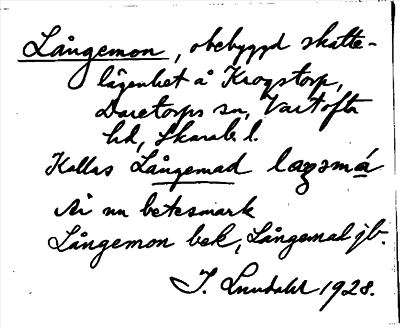 Långemon, obebyggd skatte-
lägenhet å Krogstorp,
Daretorps sn, Vartofta
hd, Skarab. l.
Kallas Långemad
Är nu betesmark
Långemon bek, Långemad jb.
J. Lundahl 1928.